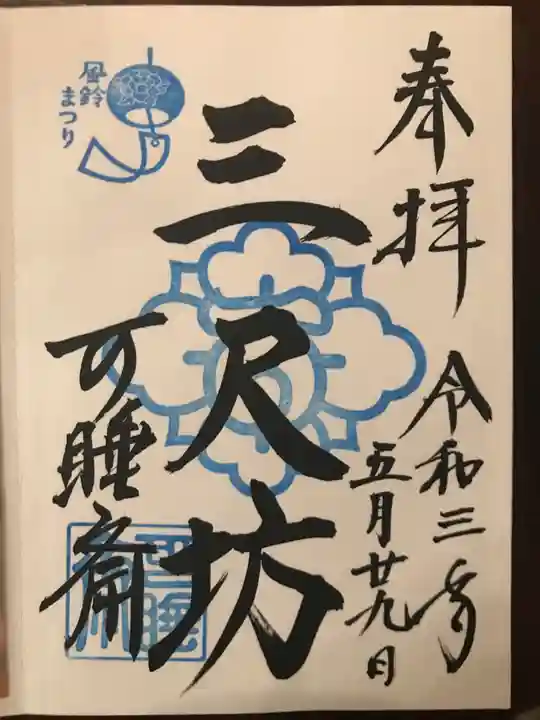 奉拝
令和三年
五月廿九日
三尺坊
可睡斎
風鈴
まつり